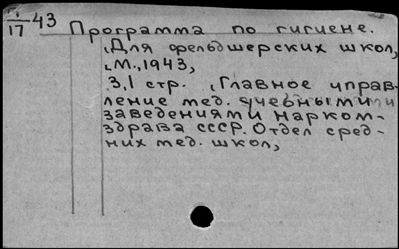 1/17-43
Программа по гигиене.
(Для фельдшерских школ,
(М., 1943,
3,1 стр. (Главное управ-
ление мед. учебными
заведениями Нарком-
здрава СССР. Отдел сред-
них мед. школ,